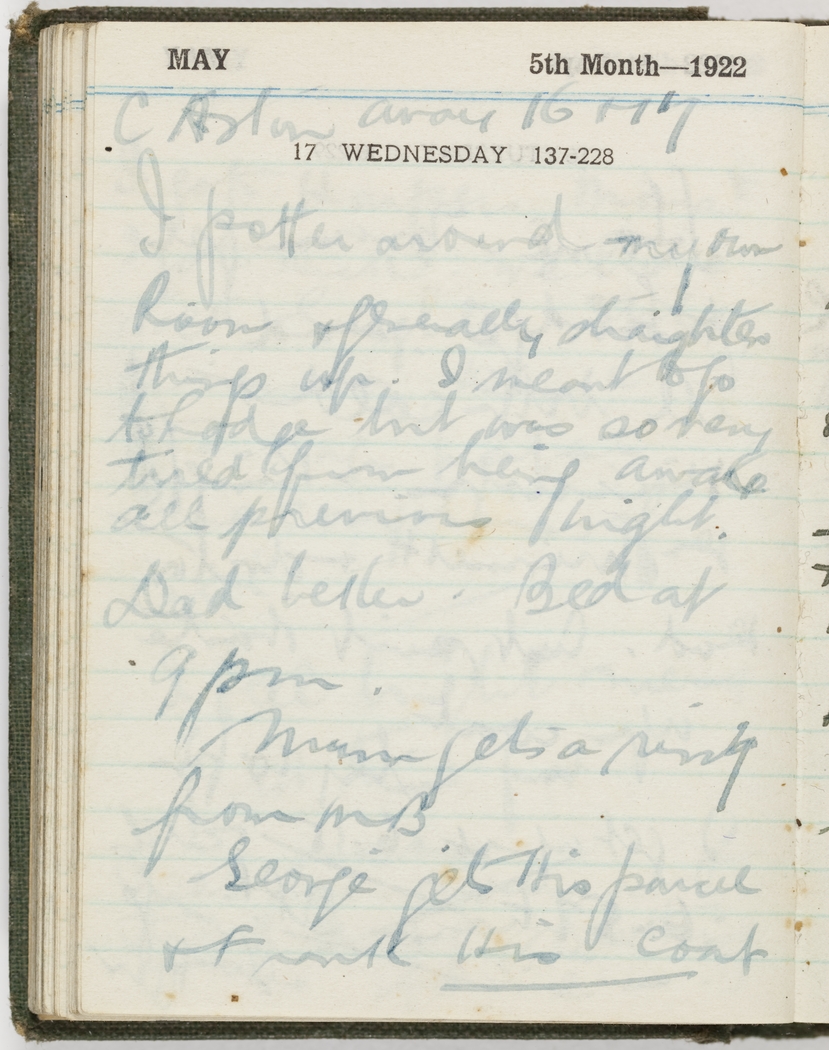 MAY 5th Month—1922
C Aston away 16 & 17
17 WEDNESDAY 137-228
I potter around my own
Room & generally straighten
things up. I meant to go
to Lodge but was so very
tired from being awake
all previous night.
Dad better. Bed at
9 pm.
Mum gets a ring
from Mr B
George gets His parcel
& His Coat